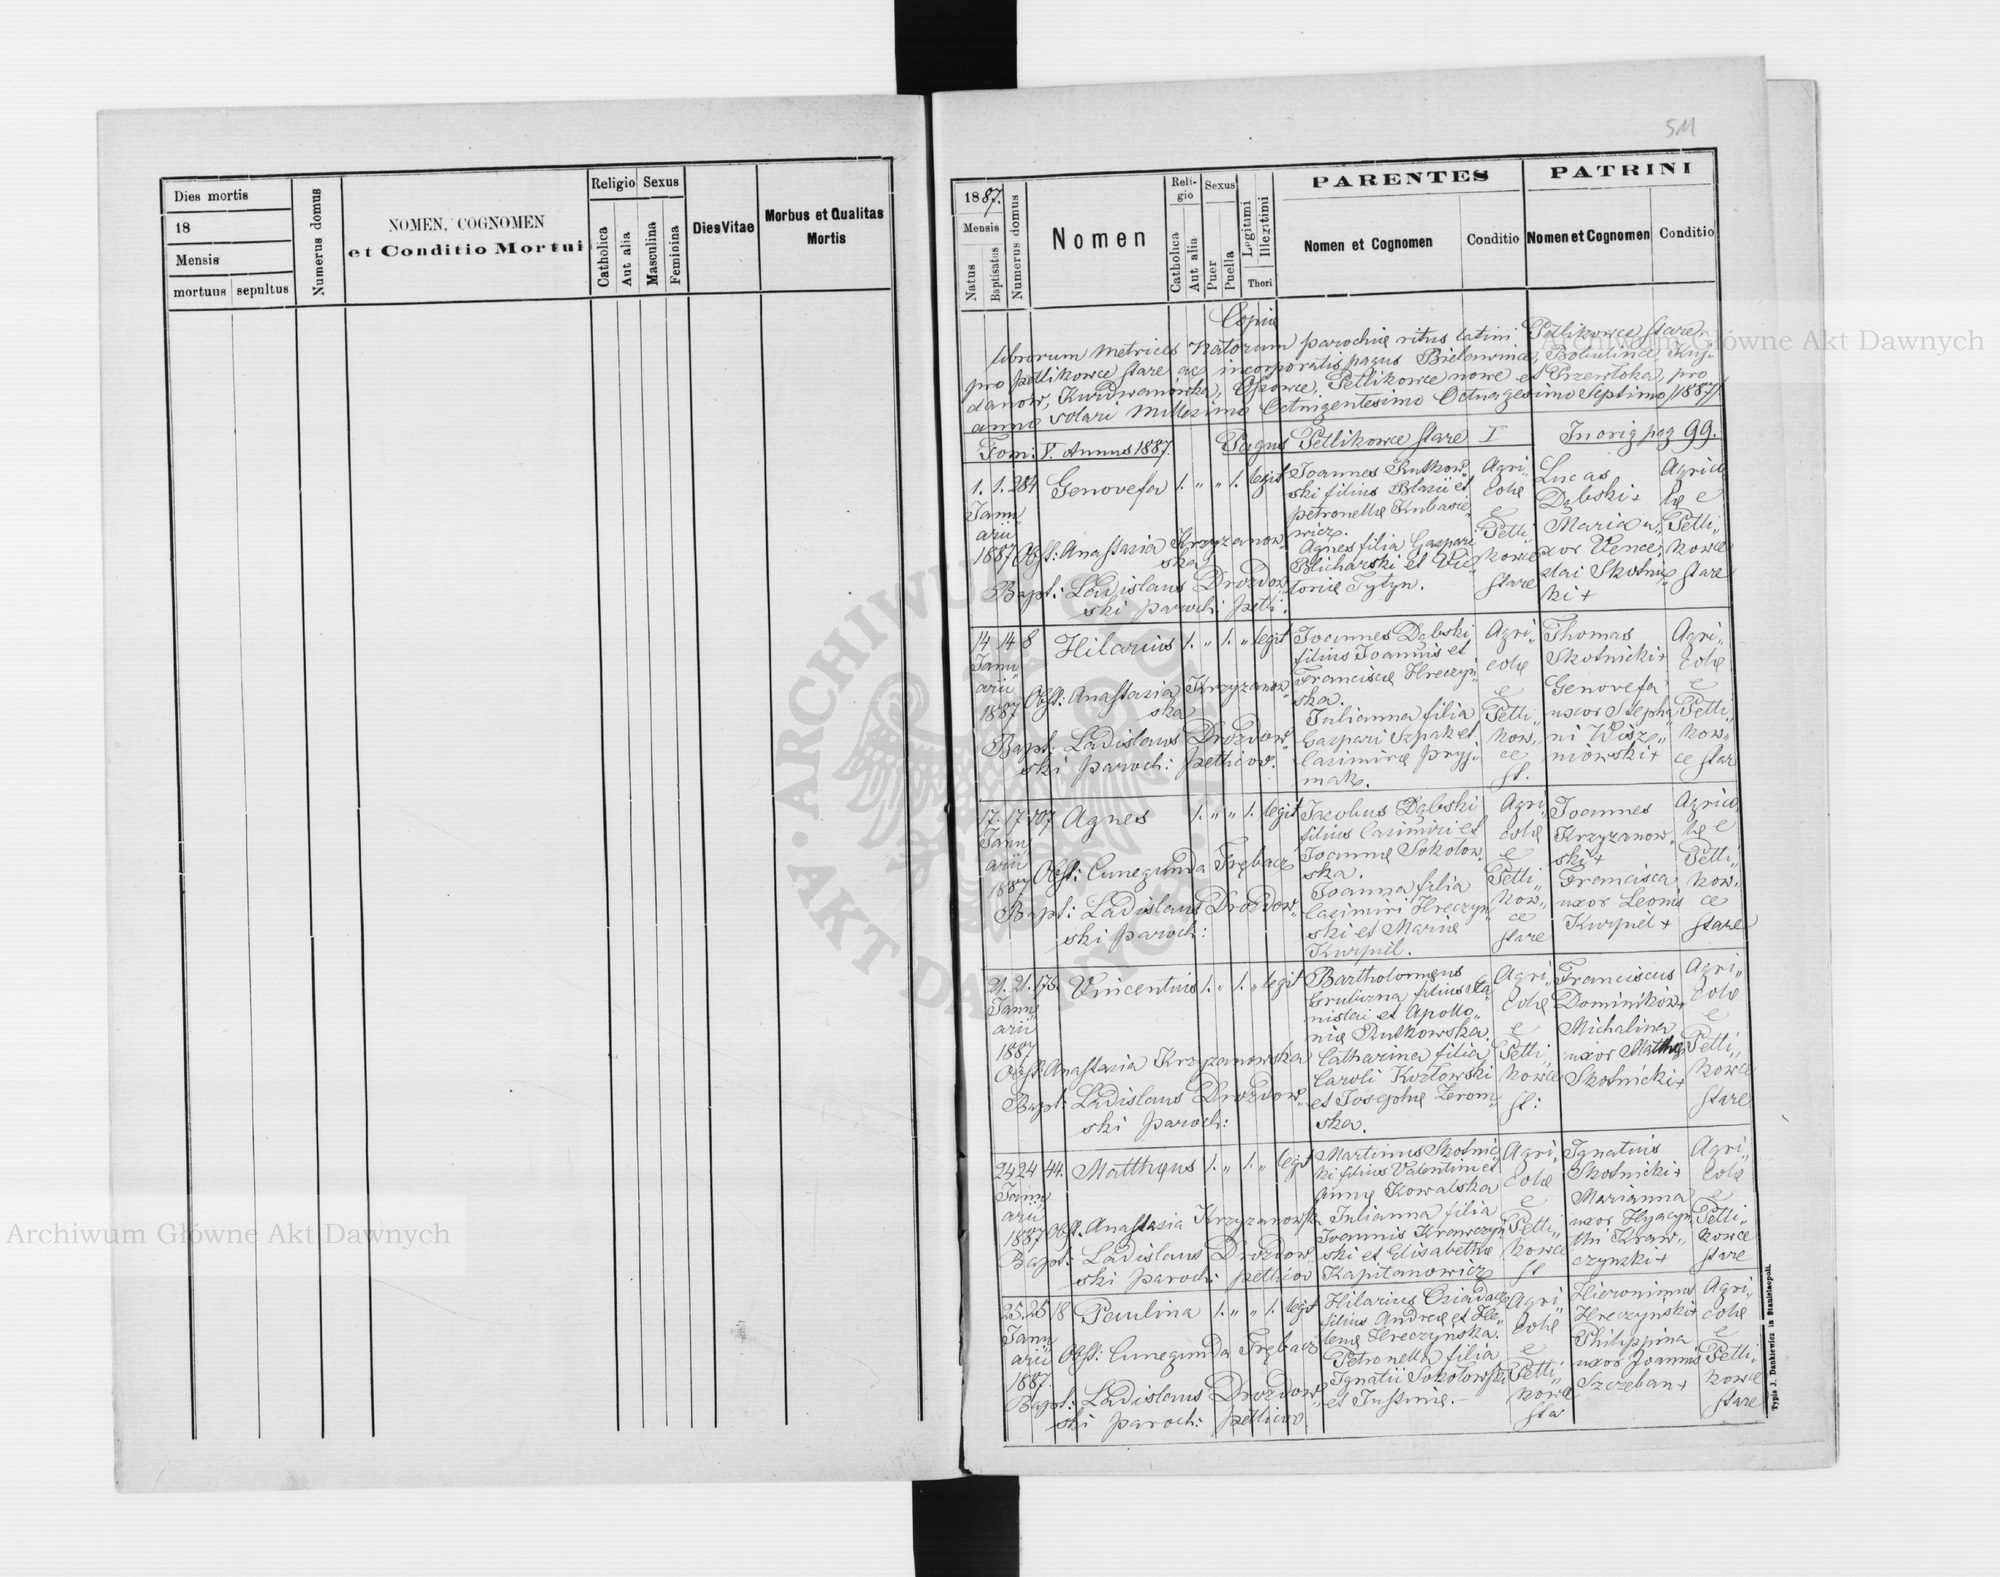 Dies mortis
18
Mensis
mortuus sepultus
Numerus domus
NOMEN, COGNOMEN
et Conditio Mortui
Religio
Catholica
Aut alia
Sexus
Masculina
Feminina
Dies Vitae
Morbus et Qualitas
Mortis
511
1887.
Mensis
Natus
Baptisatus
Numerus domus
Nomen
Religio
Catholica
Aut alia
Sexus
Puer
Puella
Legitimi
Illegitimi
Thori
PARENTES
Nomen et Cognomen
Conditio
PATRINI
Nomen et Cognomen
Conditio
Copia
librorum Metrices Natorum parochiæ ritus latini Petlikowce stare
pro Petlikowce stare ac incorporatis pagus Bielawince, Bobulince, Kuj-
danow, Kurdwanówka, Osowce, Petlikowce nowe et Przewłoka, pro
anno solari Millesimo Octingentesimo Octuagesimo Septimo /1887/.
Tom: V. Annus 1887. Pagus Petlikowce stare I In orig pag 99.
1. 1. 284 Genovefa 1. " " 1. legit
Janu„
arii
1887 Obst: Anastasia Krzyzanow„
ska
Bapt: Ladislaus Drozdow„
ski paroch: petl:
Joannes Rutkow„
ski filius Blasii et
Petronellę Kubasie„
wicz.
Agnes filia Gaspari
Blicharski et Vic„
torię Tytyn.
Agri„
colę
e
Petli„
kowce
stare
Lucas
Dąbski +
Maria u„
xor Vence„
slai Skotnic„
ki +
Agrico
lę e
Petli„
kowce
stare
14 14 8 Hilarius 1. " 1. " legit
Janu„
arii
1887 Obst: Anastasia Krzyzanow„
ska
Bapt: Ladislaus Drozdow„
ski paroch: petlicov.
Joannes Dąbski
filius Joannis et
Franciscę Hreczyń„
ska.
Julianna filia
Gaspari Szpak et
Casimirę Pryj„
mak.
Agri„
colę
e
Petli„
kow„
ce
st.
Thomas
Skotnicki +
Genovefa
uxor Stepha„
ni Wisz„
niowski +
Agri„
colę
e
Petli„
kow„
ce star
17. 17 107 Agnes 1. " " 1. legit
Janu„
arii
1887 Obst: Cunegunda Trębacz
Bapt: Ladislaus Drozdow„
ski paroch:
Jacobus Dąbski
filius Casimiri et
Joannę Sokołow„
ska.
Joanna filia
Casimiri Hreczyn„
ski et Marię
Kurpiel.
Agri„
colę
e
Petli„
kow„
ce
stare
Joannes
Krzyzanow„
ski +
Francisca
uxor Leonis
Kurpiel +
Agrico
lę e
Petli„
kow„
ce
stare
21. 21. 175. Vincentius 1. " 1. " legit
Janu„
arii
1887
Obst: Anastasia Krzyzanowska
Bapt: Ladislaus Drozdow„
ski paroch:
Bartholomęus
filius Sta„
nislai et Apollo„
nię Rutkowska.
Catharina filia
Caroli Kozłowski
et Josephę Zerom„
ska.
Agri„
colę
e
Petli„
kowce
st:
Franciscus
Dominików +
Michalina
uxor Matthęi
Skotnicki +
Agri„
colę
e
Petli„
kowce
stare
24 24 44. Matthęus 1. " 1. " legit
Janu„
arii
1887 Obst. Anastasia Krzyzanowska
Bapt: Ladislaus Drozdow„
ski paroch: petlicov
Martinus Skotnic„
ki filius Valentini et
Annę Kowalska
Julianna filia
Joannis Krawczyń„
ski et Elisabethę
Kapitanowicz
Agri„
colę
e
Petli„
kowce
st
Ignatius
Skotnicki +
Marianna
uxor Hyacyn„
thi Kraw„
czynski +
Agri„
colę
e
Petli„
kowce
stare
25. 25 18 Paulina 1. " " 1. legit
Janu„
arii
1887. Obst: Cunegunda Trębacz
Bapt: Ladislaus Drozdow„
ski paroch: petlicov.
Hilarius Osiadacz
filius Andreę et He„
lenę Hreczynska.
Petronella filia
Ignatii Sokołowski
et Justinię.
Agri„
colę
e
Petli„
kowce
sta
Hieronimus
Hreczynski +
Philippina
uxor Joannis
Szczeban +
Agri„
colę
e
Petli„
kowce
stare
Typis J. Dankiewicz in Stanislaopoli.
Archiwum Główne Akt Dawnych
Archiwum Główne Akt Dawnych
ARCHIWUM GŁÓWNE AKT DAWNYCH